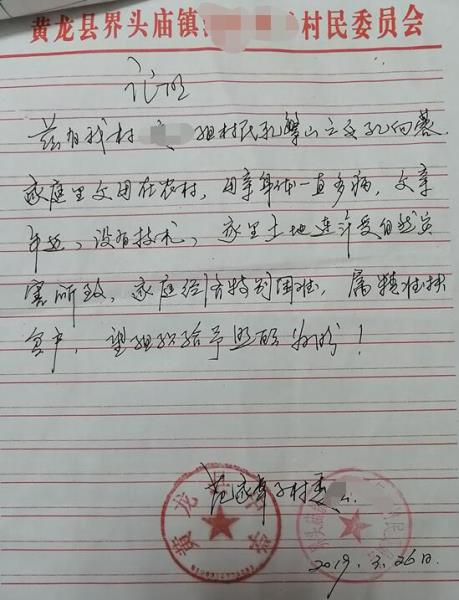 黄龙县界头庙镇 村民委员会
证明
兹有我村 组村民孔攀山之女孔向蓉
家庭里文用在农村,母亲身体一直多病,父亲
年迈,没有技术,家里土地连年受自然灾
害所致,家庭经济特别困难,属精准扶
贫户,望组织给予照顾为盼!
范家卓子村委
2019.3.26日